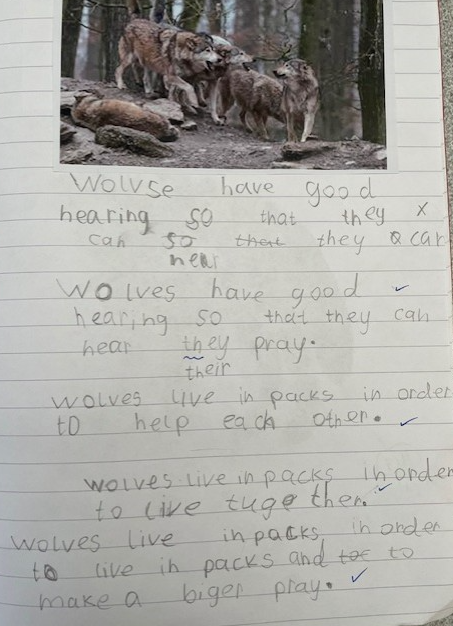 Wolvse have good
hearing so that they x
can so that they a car
hear
Wolves have good
hearing so that they can
hear they pray.
their
wolves live in packs in order
to help each other.
wolves live in packs in order
to live tugether.
wolves live in packs in order
to live in packs and toc to
make a biger pray.